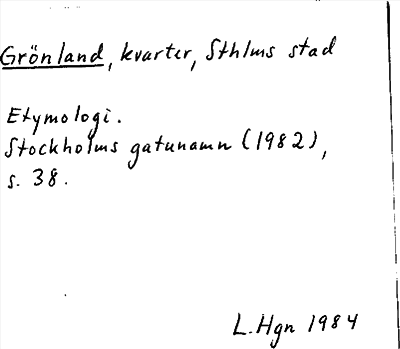 Grönland, kvarter, Sthlms stad
Etymologi.
Stockholms gatunamn (1982),
s. 38.
L.Hgn 1984